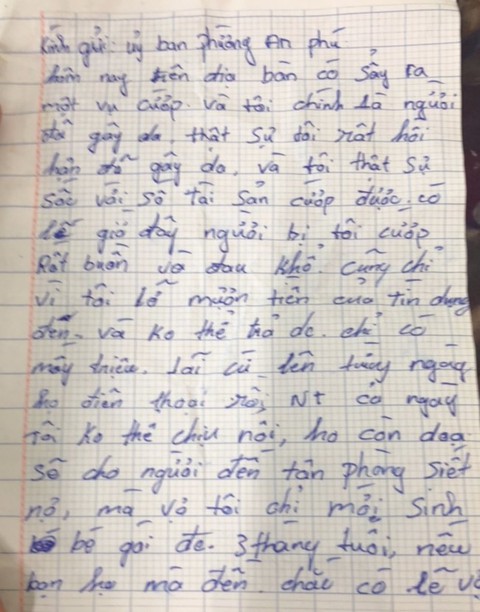 Kính gửi: uỷ ban phường An phú
hôm nay trên địa bàn có sảy ra
một vụ cướp. và tôi chính là người
đã gây da. thật sự tôi rất hối
hận đã gây da. và tôi thật sự
sốc với số tài sản cướp được. có
lẽ giờ đây người bị tôi cướp
Rất buồn và đau khổ. cũng chỉ
vì tôi lỡ mượn tiền của tín dụng
đen. và ko thể trả dc. chỉ có
mấy triệu. lãi cứ lên từng ngày
họ điện thoại rồi NT cả ngày
Tôi ko thể chịu nổi, họ còn doạ
sẽ cho người đến tận phòng siết
nợ, mà vợ tôi chỉ mới sinh
bé gái dc. 3 tháng tuổi, nếu
bọn họ mà đến. chắc có lẽ vợ